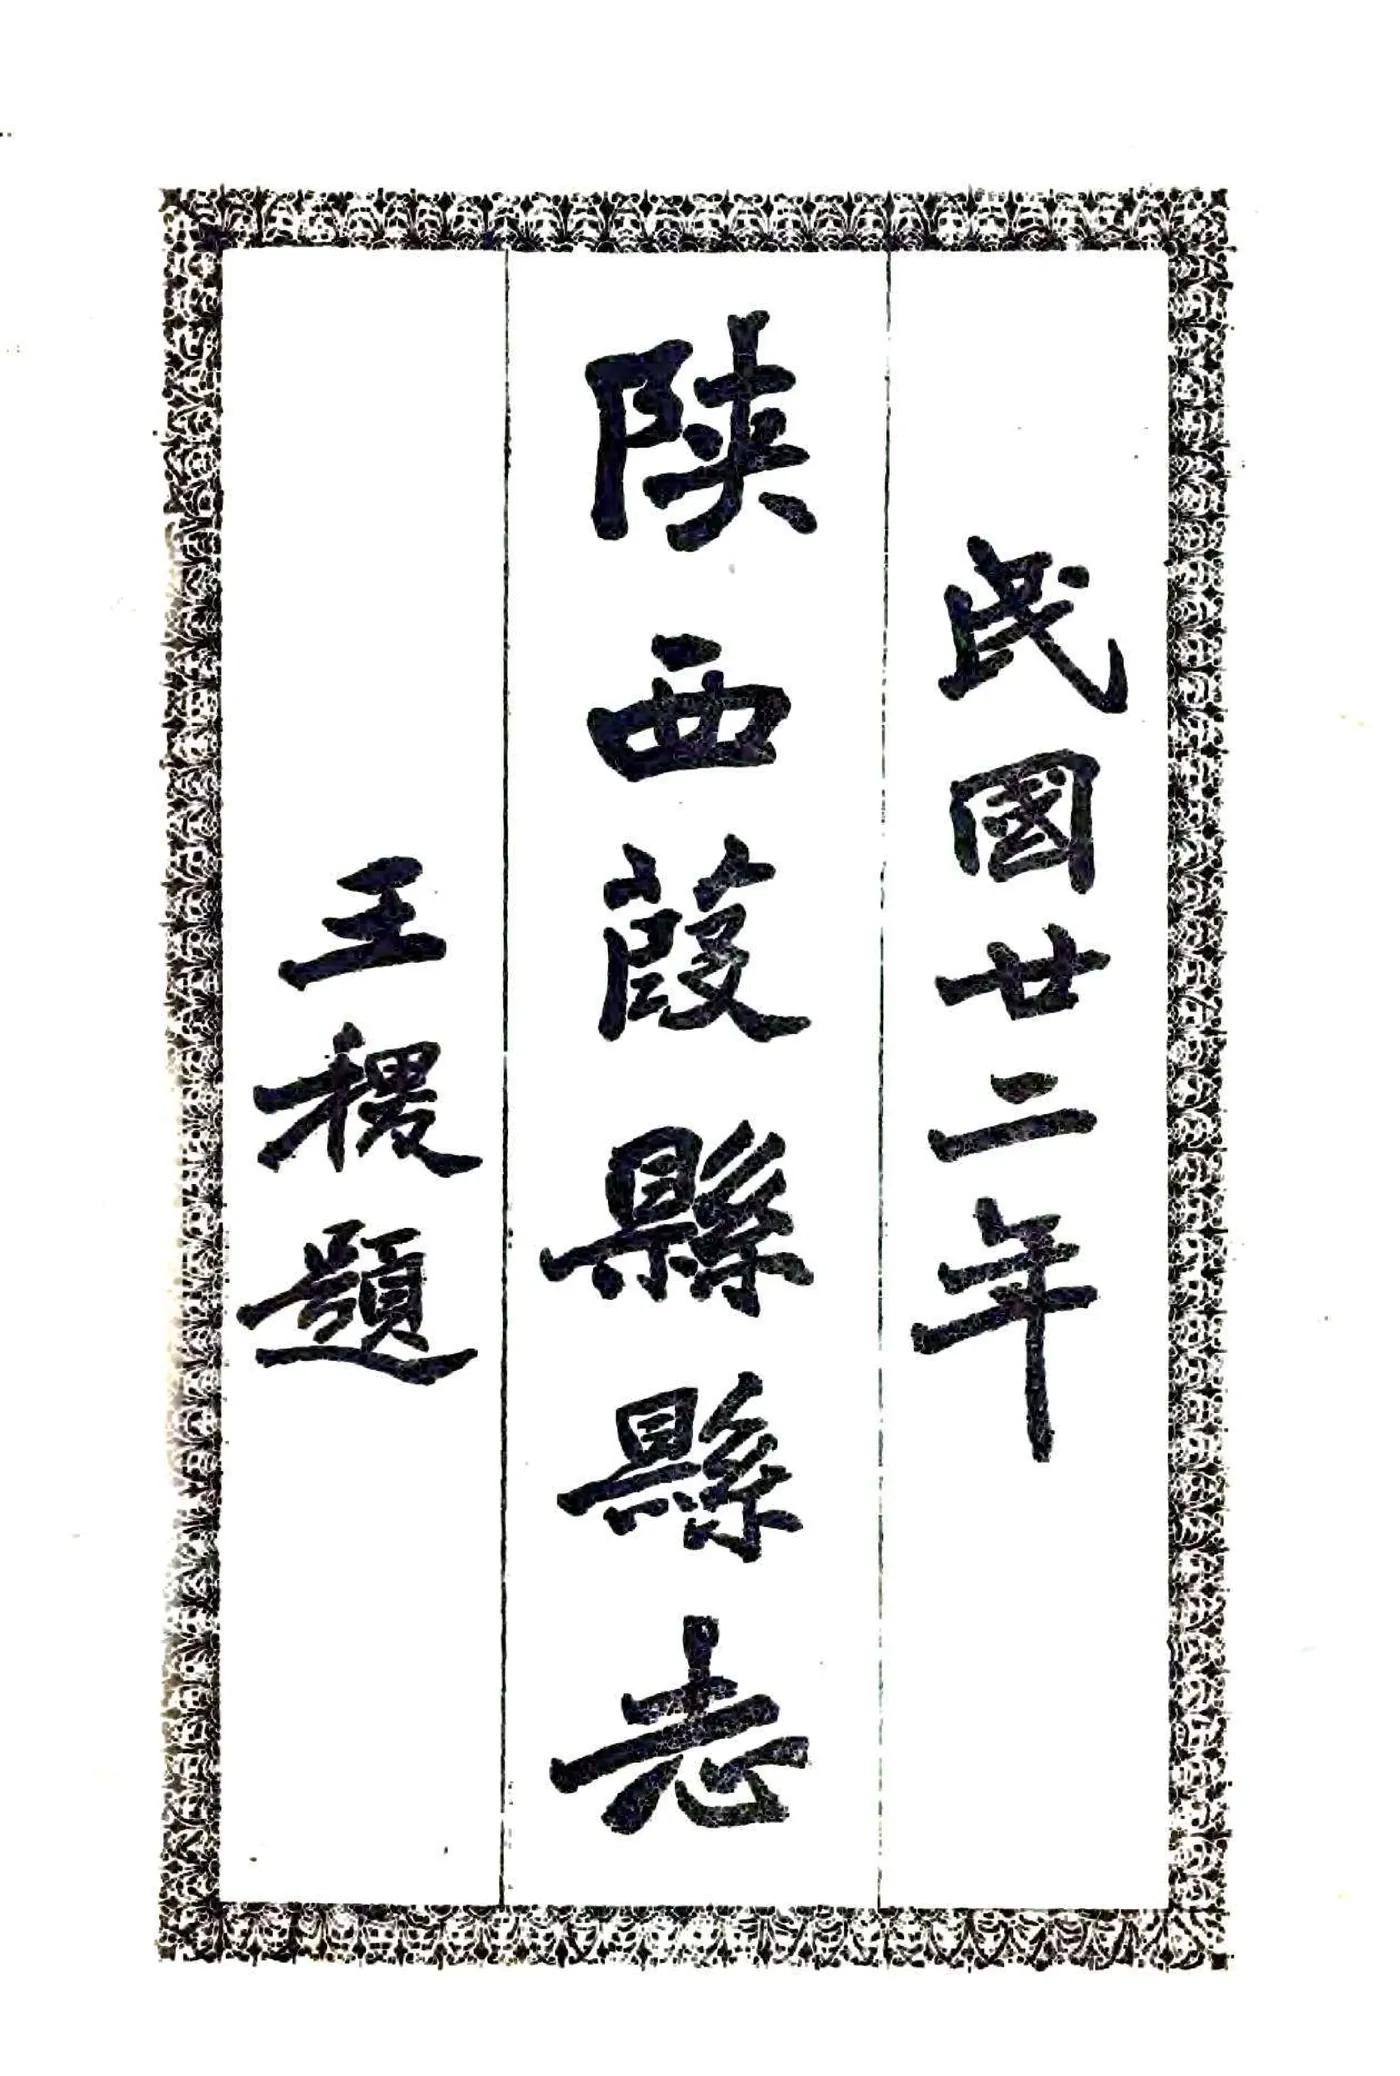 民國廿二年
陝西葭縣縣志
王稷題